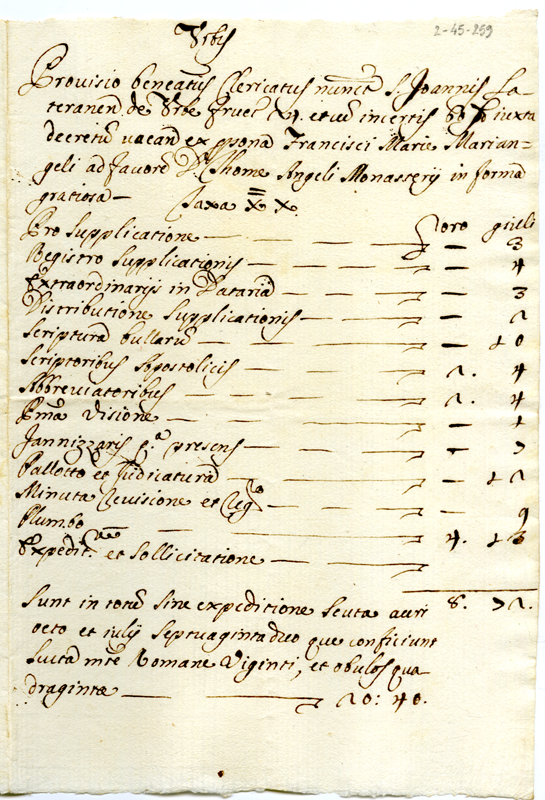 2-45-259
Urbis
Provisio beneatus Clericatus nunct S. Joannis La-
teranen de Urbe fruct 24. et cū incertis iuxta
decretū vacand ex psona Francisci Marie Marian-
geli ad favorē D. Thome Angeli Monasterij in forma
gratiosa — Taxa X X.
oro giulli
Pro Supplicatione — — — — 3
Registro Supplicationis — — — — 4
Extraordinarijs in Datariā — — — 3
Distributione Supplicationis — — — 2
Scripturā bullarū — — — — 10
Scriptoribus Apostolicis — — — 2. 4
Abbreviatoribus — — — — 2. 4
Pmā Visione — — — — 1
Jannizzaris p.a presens — — — 7
Pallotto et Judicaturā — — — 12
Minuta Revisione et Reg.ro — — — 9
Plumbo — — — 4. 13
Expedit.ne et Sollicitatione — — —
Sunt in totū sine expeditione Scuta auri 8. 72.
octo et iulij Septuaginta duo que conficiunt
Scuta mtē Romane Viginti, et obulos qua-
draginta — — 20: 40.